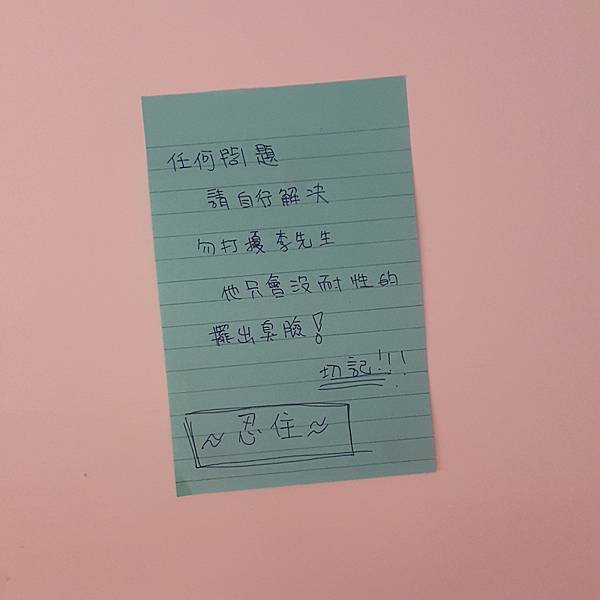 任何問題
請自行解決
勿打擾李先生
他只會沒耐性的
擺出臭臉!
切記!!!
~忍住~